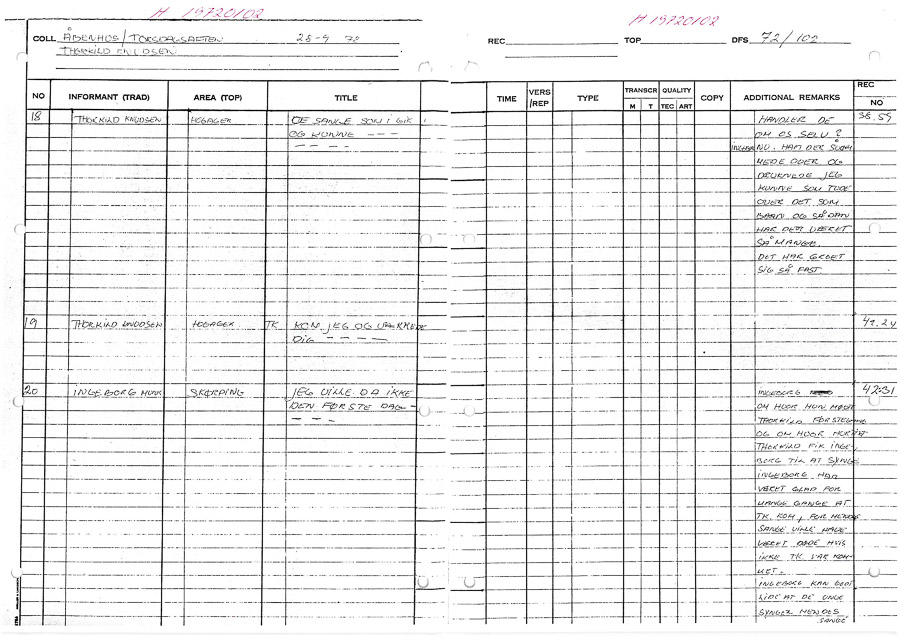 H 19720102
H 19720102
COLL ÅBENHUS / TORSDAGSAFTEN 28-9 72
THORKILD KNUDSEN
REC TOP DFS 72/102
NO INFORMANT (TRAD) AREA (TOP) TITLE
TIME VERS /REP TYPE TRANSCR M T QUALITY TEC ART COPY ADDITIONAL REMARKS REC NO
18 THORKILD KNUDSEN HOGAGER DE SANGE SOM I GIK
OG KUNNE - - -
- - - - -
HANDLER DE 38.59
OM OS SELV?
NU. HAM DER SVØM
MEDE OVER OG
DRUKNEDE JEG
KUNNE SOM TUDE
OVER DET SOM
BARN OG SÅDAN
HAR DER VÆRET
SÅ MANGE.
DET HAR GROET
SIG SÅ FAST
19 THORKILD KNUDSEN HOGAGER TK KOM JEG OG VÆKKEDE
DIG - - - - -
41.24
20 INGEBORG MUNK SKØRPING JEG VILLE DA IKKE
DEN FØRSTE DAG -
- - - -
INGEBORG 42.31
OM HVOR HUN MØDTE
THORKILD FØRSTEGANG
OG OM HVOR
THORKILD FIK INGE-
BORG TIL AT SYNGE
INGEBORG HAR
VÆRET GLAD FOR
MANGE GANGE AT
TK. KOM, FOR HENDES
SANGE VILLE HAVE
VÆRET DØDE HVIS
IKKE TK VAR KOM-
MET.
INGEBORG KAN GODT
LIDE AT DE UNGE
SYNGER HENDES
SANGE